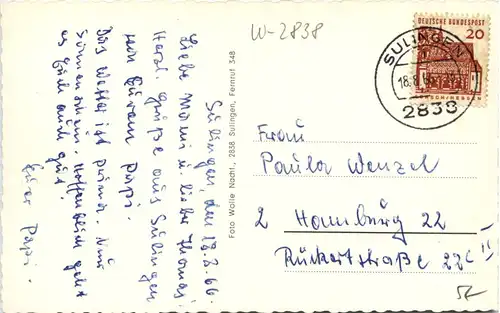 Sulingen, den 18.8.66.
Liebe Mami u. liebe Thomas!
Herzl. Grüße aus Sulingen
von Eurem Papi.
Das Wetter ist prima. Nur
Sonnenschein. Hoffentlich geht
es Euch auch gut.
Euer Papi.
Foto Wolle Nachf., 2838 Sulingen, Fernruf 348
W-2838
DEUTSCHE BUNDESPOST
20
LORSCH/HESSEN
SULINGEN
18.8.66
2838
Frau
Paula Wenzel
2 Hamburg 22
Rückertstraße 22c II